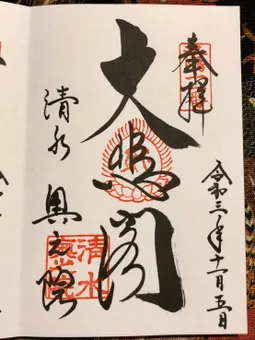 奉拝
令和三年十一月五日
大悲閣
清水
奥之院
清水
奥之院